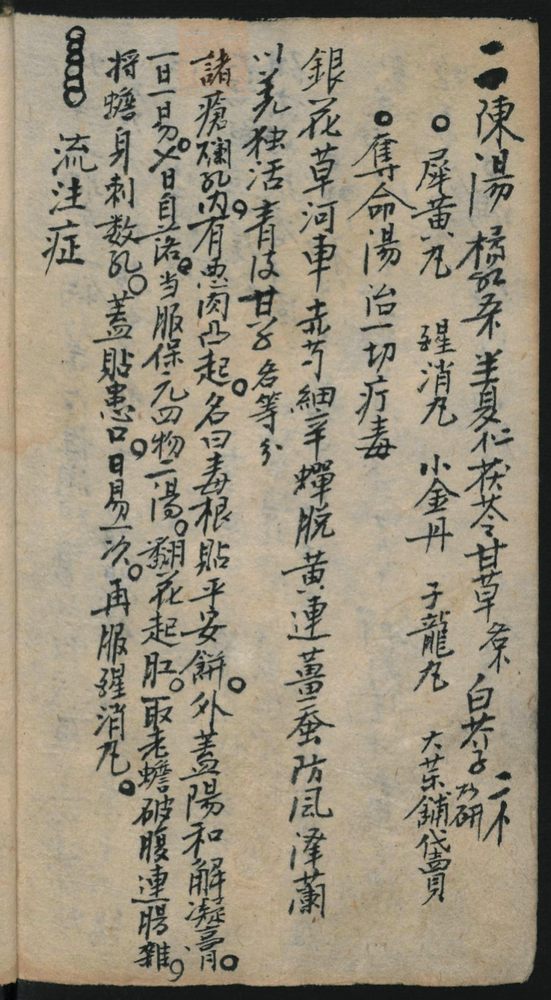 二陳湯 橘紅 半夏 仁茯苓 甘草 白芥子 研
○犀黃丸 醒消丸 小金丹 子龍丸 大藥鋪代賣
○奪命湯 治一切疔毒
銀花 草河車 赤芍 細辛 蟬脫 黃連 薑蚕 防風 澤蘭
羌独活 青皮 甘草 各等分
諸瘡爛孔內有惡肉凸起。名曰毒根貼平安餅。外蓋陽和解凝膏。
一日一易。七日自落。当服保元四物二湯。翻花起肛。取老蟾破腹連腸雜。
将蟾身刺数孔。蓋貼患口。日易一次。再服醒消丸。
流注症